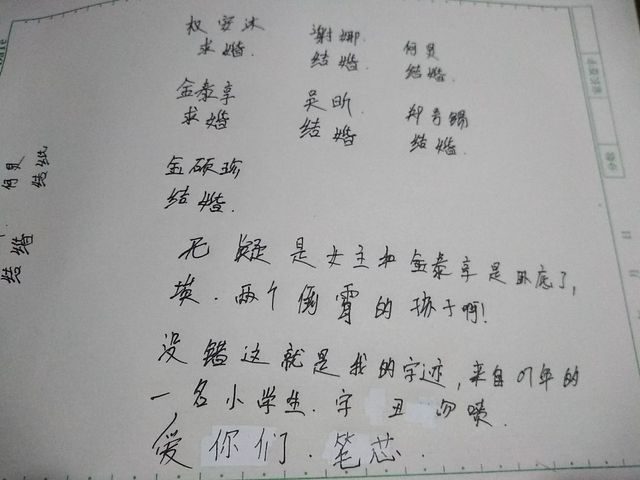 权安沐 谢娜 何炅
求婚. 结婚. 结婚.
金泰亨 吴昕 郑号锡
求婚 结婚 结婚.
金硕珍
结婚.
无疑是女主和金泰亨是卧底了,
埃.两个倒霉的孩子啊!
没错这就是我的字迹,来自01年的
一名小学生.字丑勿喷.
爱你们.笔芯.
何炅
结纸
结婚